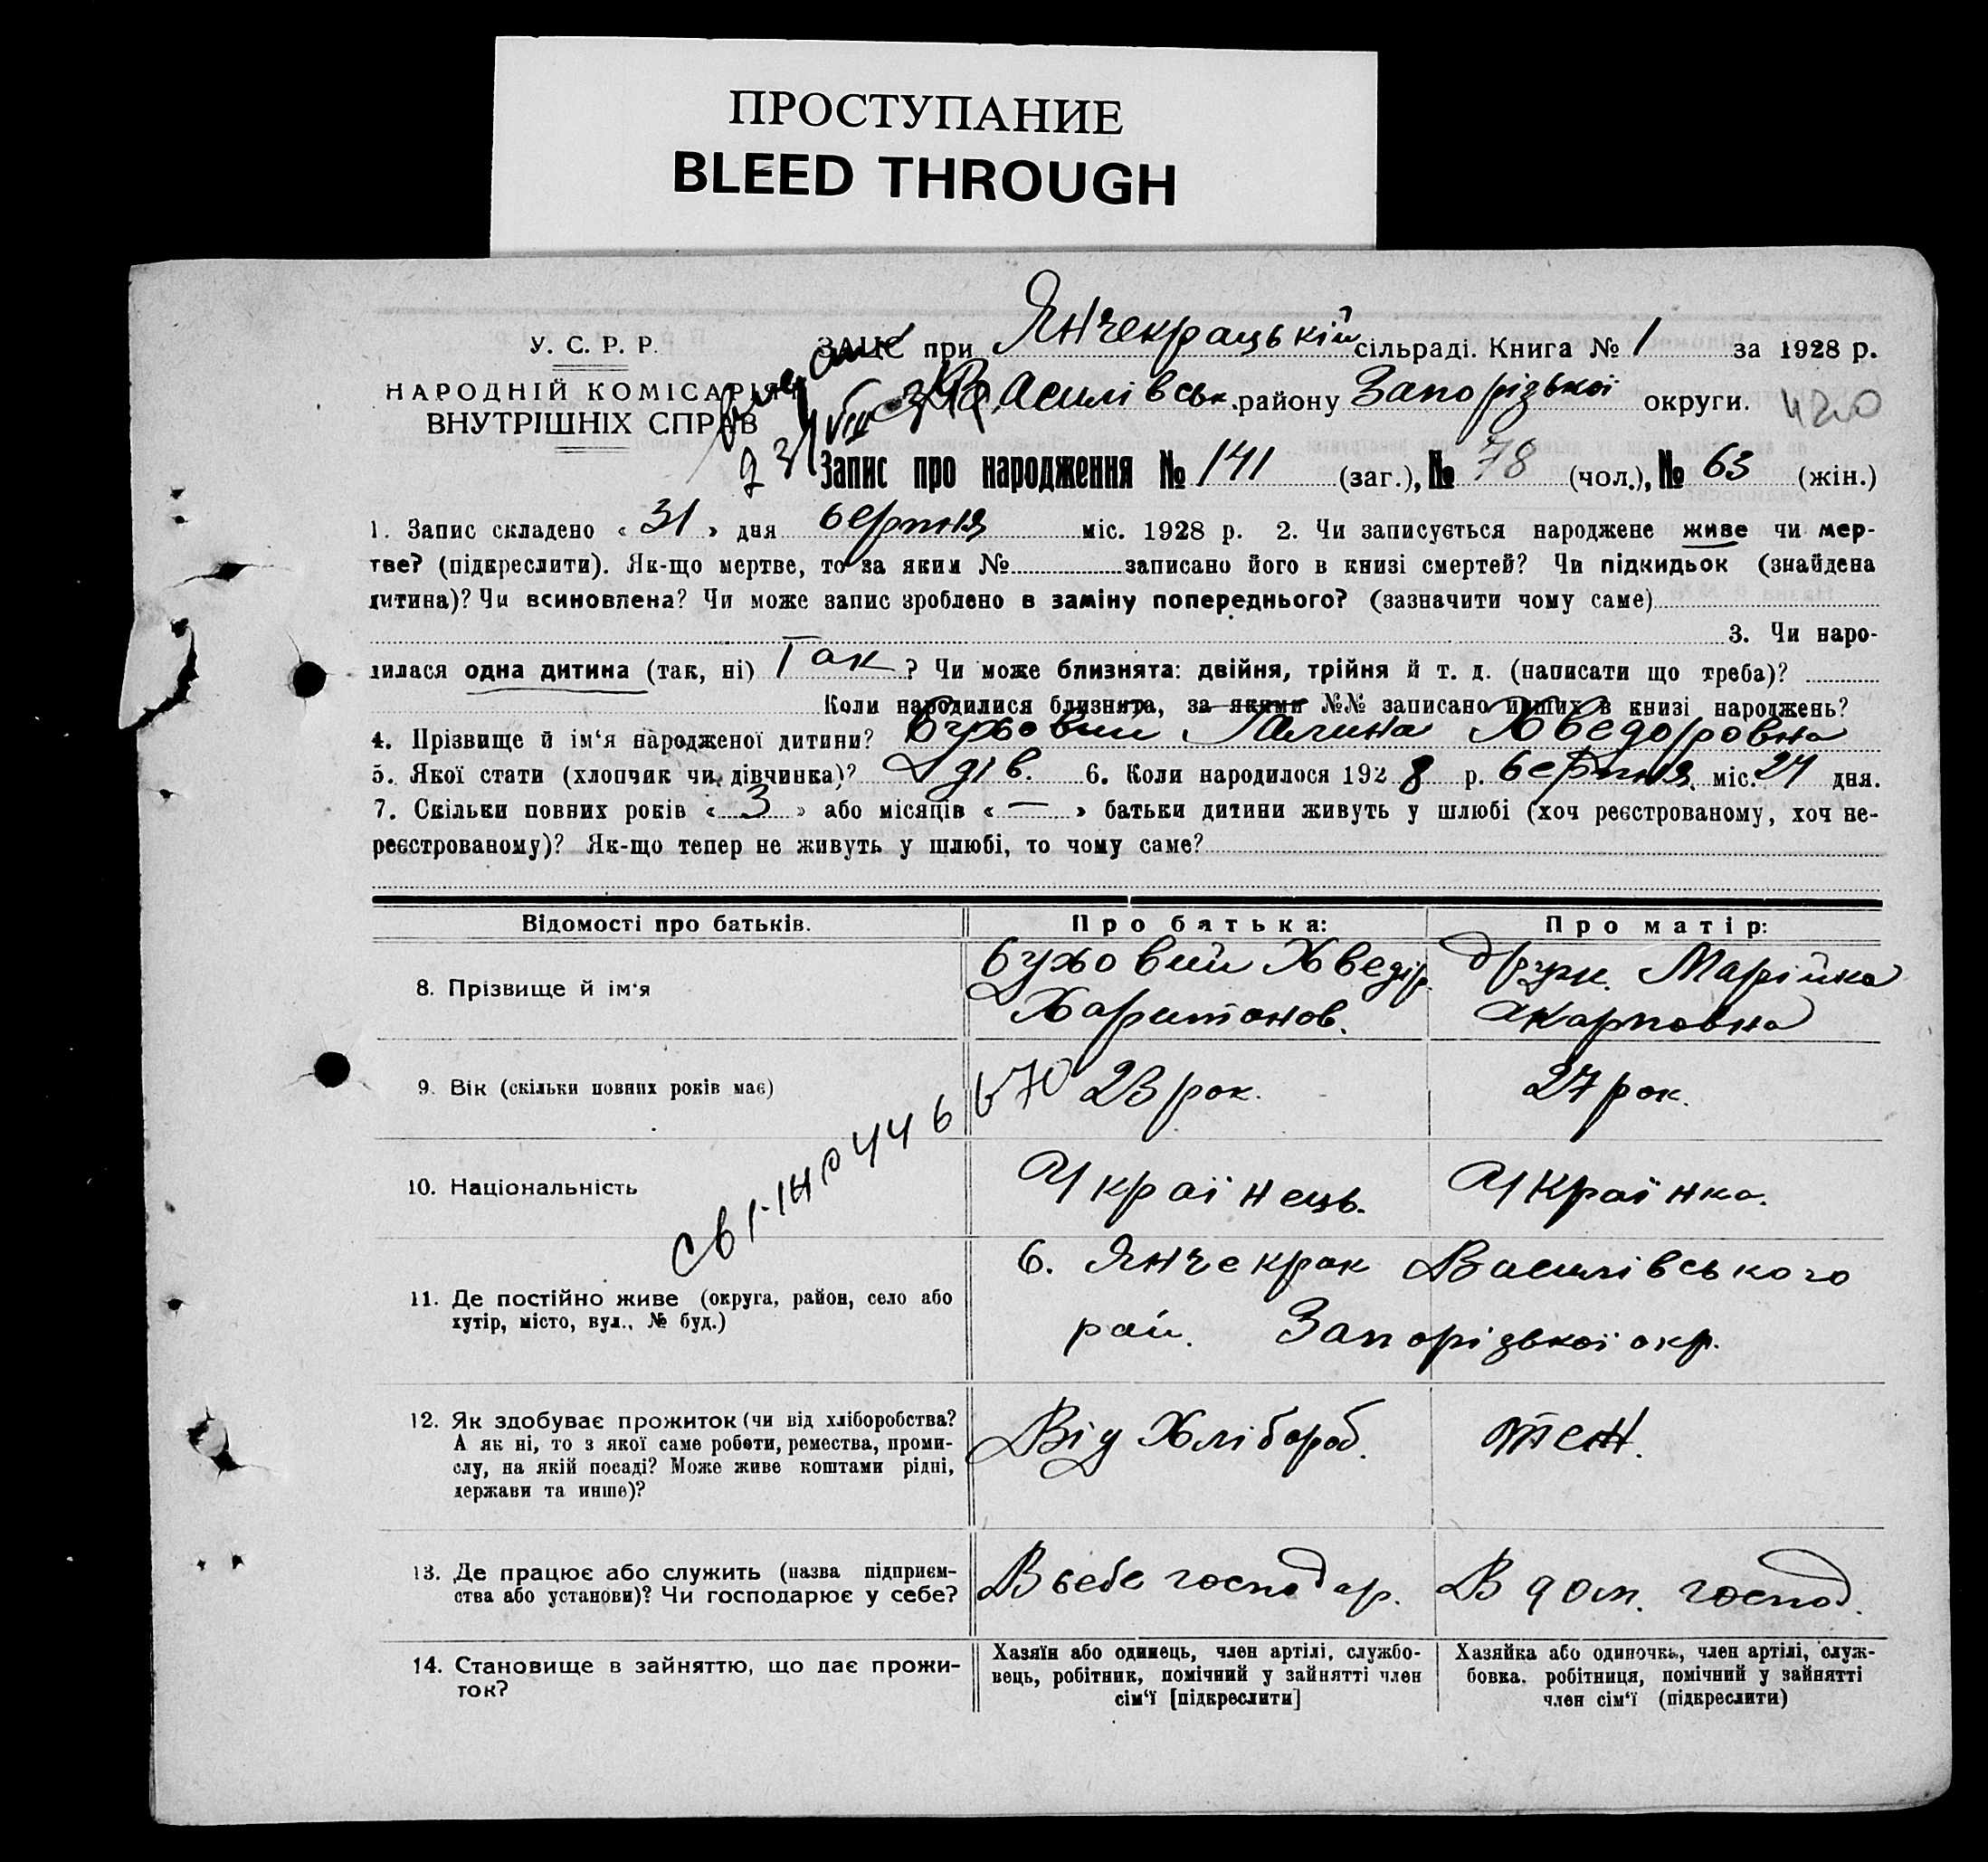 ПРОСТУПАНИЕ
BLEED THROUGH
У. С. Р. Р.
НАРОДНІЙ КОМІСАРІЯТ
ВНУТРІШНІХ СПРАВ
ЗАЦС при Янчекрацькій сільраді. Книга № 1 за 1928 р.
Василівськ. району Запорізької округи. 420
Запис про народження № 141 (заг.), № 78 (чол.), № 63 (жін.)
1. Запис складено « 31 » дня серпня міс. 1928 р. 2. Чи записується народжене живе чи мер-
тве? (підкреслити). Як-що мертве, то за яким № записано його в книзі смертей? Чи підкидьок (знайдена
дитина)? Чи всиновлена? Чи може запис зроблено в заміну попереднього? (зазначити чому саме)
3. Чи наро-
дилася одна дитина (так, ні) Так ? Чи може близнята: двійня, трійня й т. д. (написати що треба)?
Коли народилися близнята, за якими №№ записано инших в книзі народжень?
4. Прізвище й ім'я народженої дитини? Бужовий Галина Хведоровна
5. Якої стати (хлопчик чи дівчинка)? дів. 6. Коли народилося 1928 р. серпня міс. 27 дня.
7. Скільки повних років « 3 » або місяців « — » батьки дитини живуть у шлюбі (хоч реєстрованому, хоч не-
реєстрованому)? Як-що тепер не живуть у шлюбі, то чому саме?
Відомості про батьків. Про батька: Про матір:
8. Прізвище й ім'я
Бужовий Хведір друж. Марійка
Харитонов. Карповна
9. Вік (скільки повних років має) 23 рок. 27 рок.
10. Національність Українець. Українка.
11. Де постійно живе (округа, район, село або
хутір, місто, вул., № буд.)
с. Янчекрак Василівського
рай. Запорізької окр.
12. Як здобуває прожиток (чи від хліборобства?
А як ні, то з якої саме роботи, ремества, проми-
слу, на якій посаді? Може живе коштами рідні,
держави та инше)?
Від Хлібороб. теж.
13. Де працює або служить (назва підприєм-
ства або установи)? Чи господарює у себе?
В себе господар. В дом. господ.
14. Становище в зайняттю, що дає прожи-
ток?
Хазяїн або одинець, член артілі, службо-
вець, робітник, помічний у зайнятті член
сім'ї [підкреслити]
Хазяйка або одиночка, член артілі, служ-
бовка, робітниця, помічний у зайнятті
член сім'ї (підкреслити)